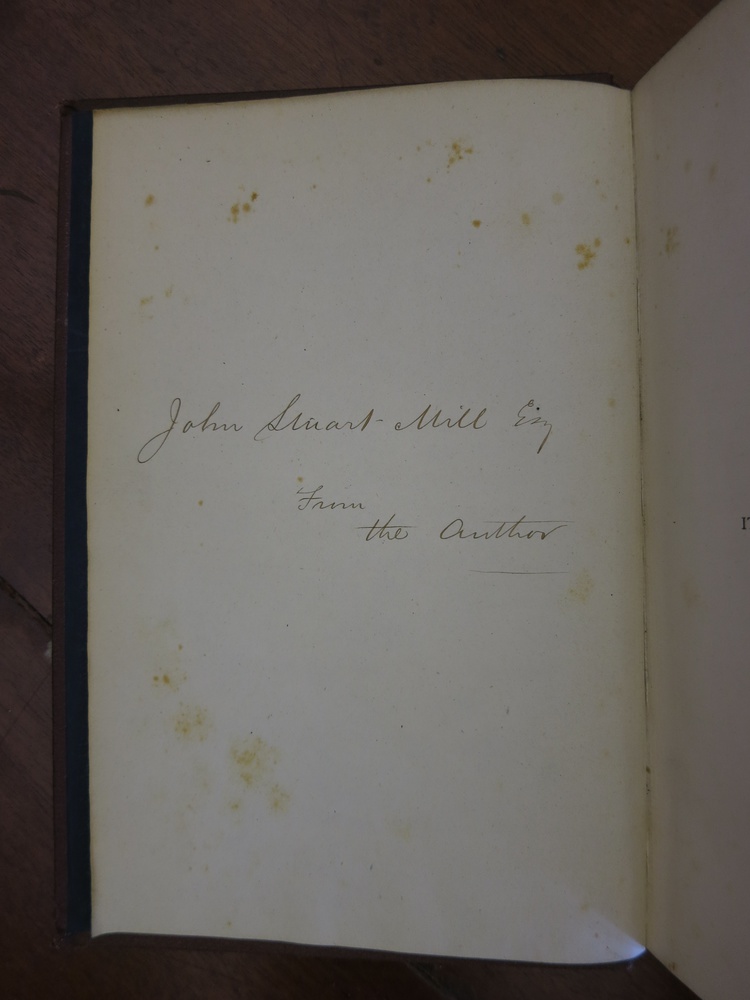 John Stuart Mill Esq
From
the Author